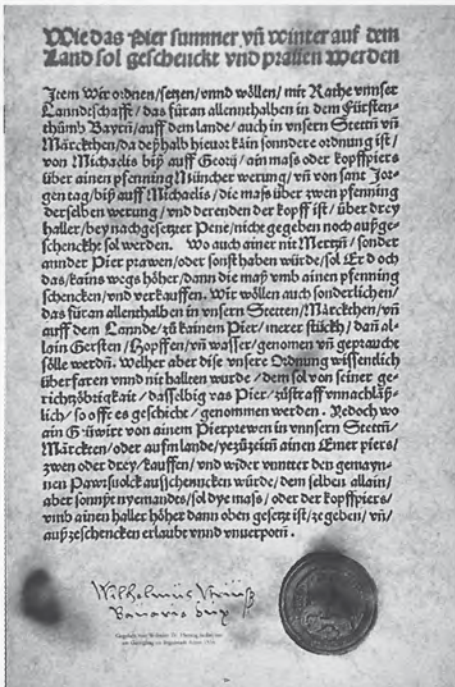 Wie das Pier summer vñ winter auf dem
Land sol geschenckt vnd prauen werden
Item Wir ordnen/setzen/vnnd wöllen/mit Rathe vnnser
Lanndtschafft/das füran allennthalben in dem Fürsten-
thůmb Bayrñ/auff dem lande/auch in vnsern Stettñ vñ
Märckthen/da deßhalb hieuor kain sonndere ordnung ist/
von Michaelis biß auff Georij/ain mass oder kopffpiers
über ainen pfenning Müncher werung/vñ von sant Jor-
gentag/biß auff Michaelis/die mass über zwen pfenning
derselben werung/vnd derenden der kopff ist/über drey
haller/bey nachgesetzter Pene/nicht gegeben noch außge-
schenckht sol werden. Wo auch ainer nit Mertzñ/sonder
annder Pier prawen/oder sonst haben würde/sol Er doch
das/kains wegs höher/dann die maß vmb ainen pfenning
schencken/vnd verkauffen. Wir wöllen auch sonderlichen/
das füran allenthalben in vnsern Stetten/Märckthen/vñ
auff dem Lannde/zů kainem Pier/merer stückh/dañ al-
lain Gersten/Hopffen/vñ wasser/genomen vñ gepraucht
sölle werdñ. Welher aber dise vnsere Ordnung wissendlich
überfaren vnnd nit hallten wurde/dem sol von seiner ge-
richtzöbrigkait/dasselbig vas Pier/zůstraff vnnachläß-
lich/so offt es geschicht/genommen werden. Yedoch wo
ain Güwirt von ainem Pierprewen in vnnsern Stettñ/
Märckten/oder aufm lande/yezůzeitñ ainen Emer piers/
zwen oder drey/kauffen/vnd wider vnntter den gemayn-
nen Pawrsuolck ausschenncken würde/dem selben allain/
aber sonnst nyemandes/sol dye mass/oder der kopffpiers/
vmb ainen haller höher dann oben gesetzt ist/ze geben/vñ/
außzeschencken erlaubt vnnd vnuerpotñ.
Gegeben von Wilhelm IV. Herzog in Bayern
am Georgitag zu Ingolstadt Anno 1516